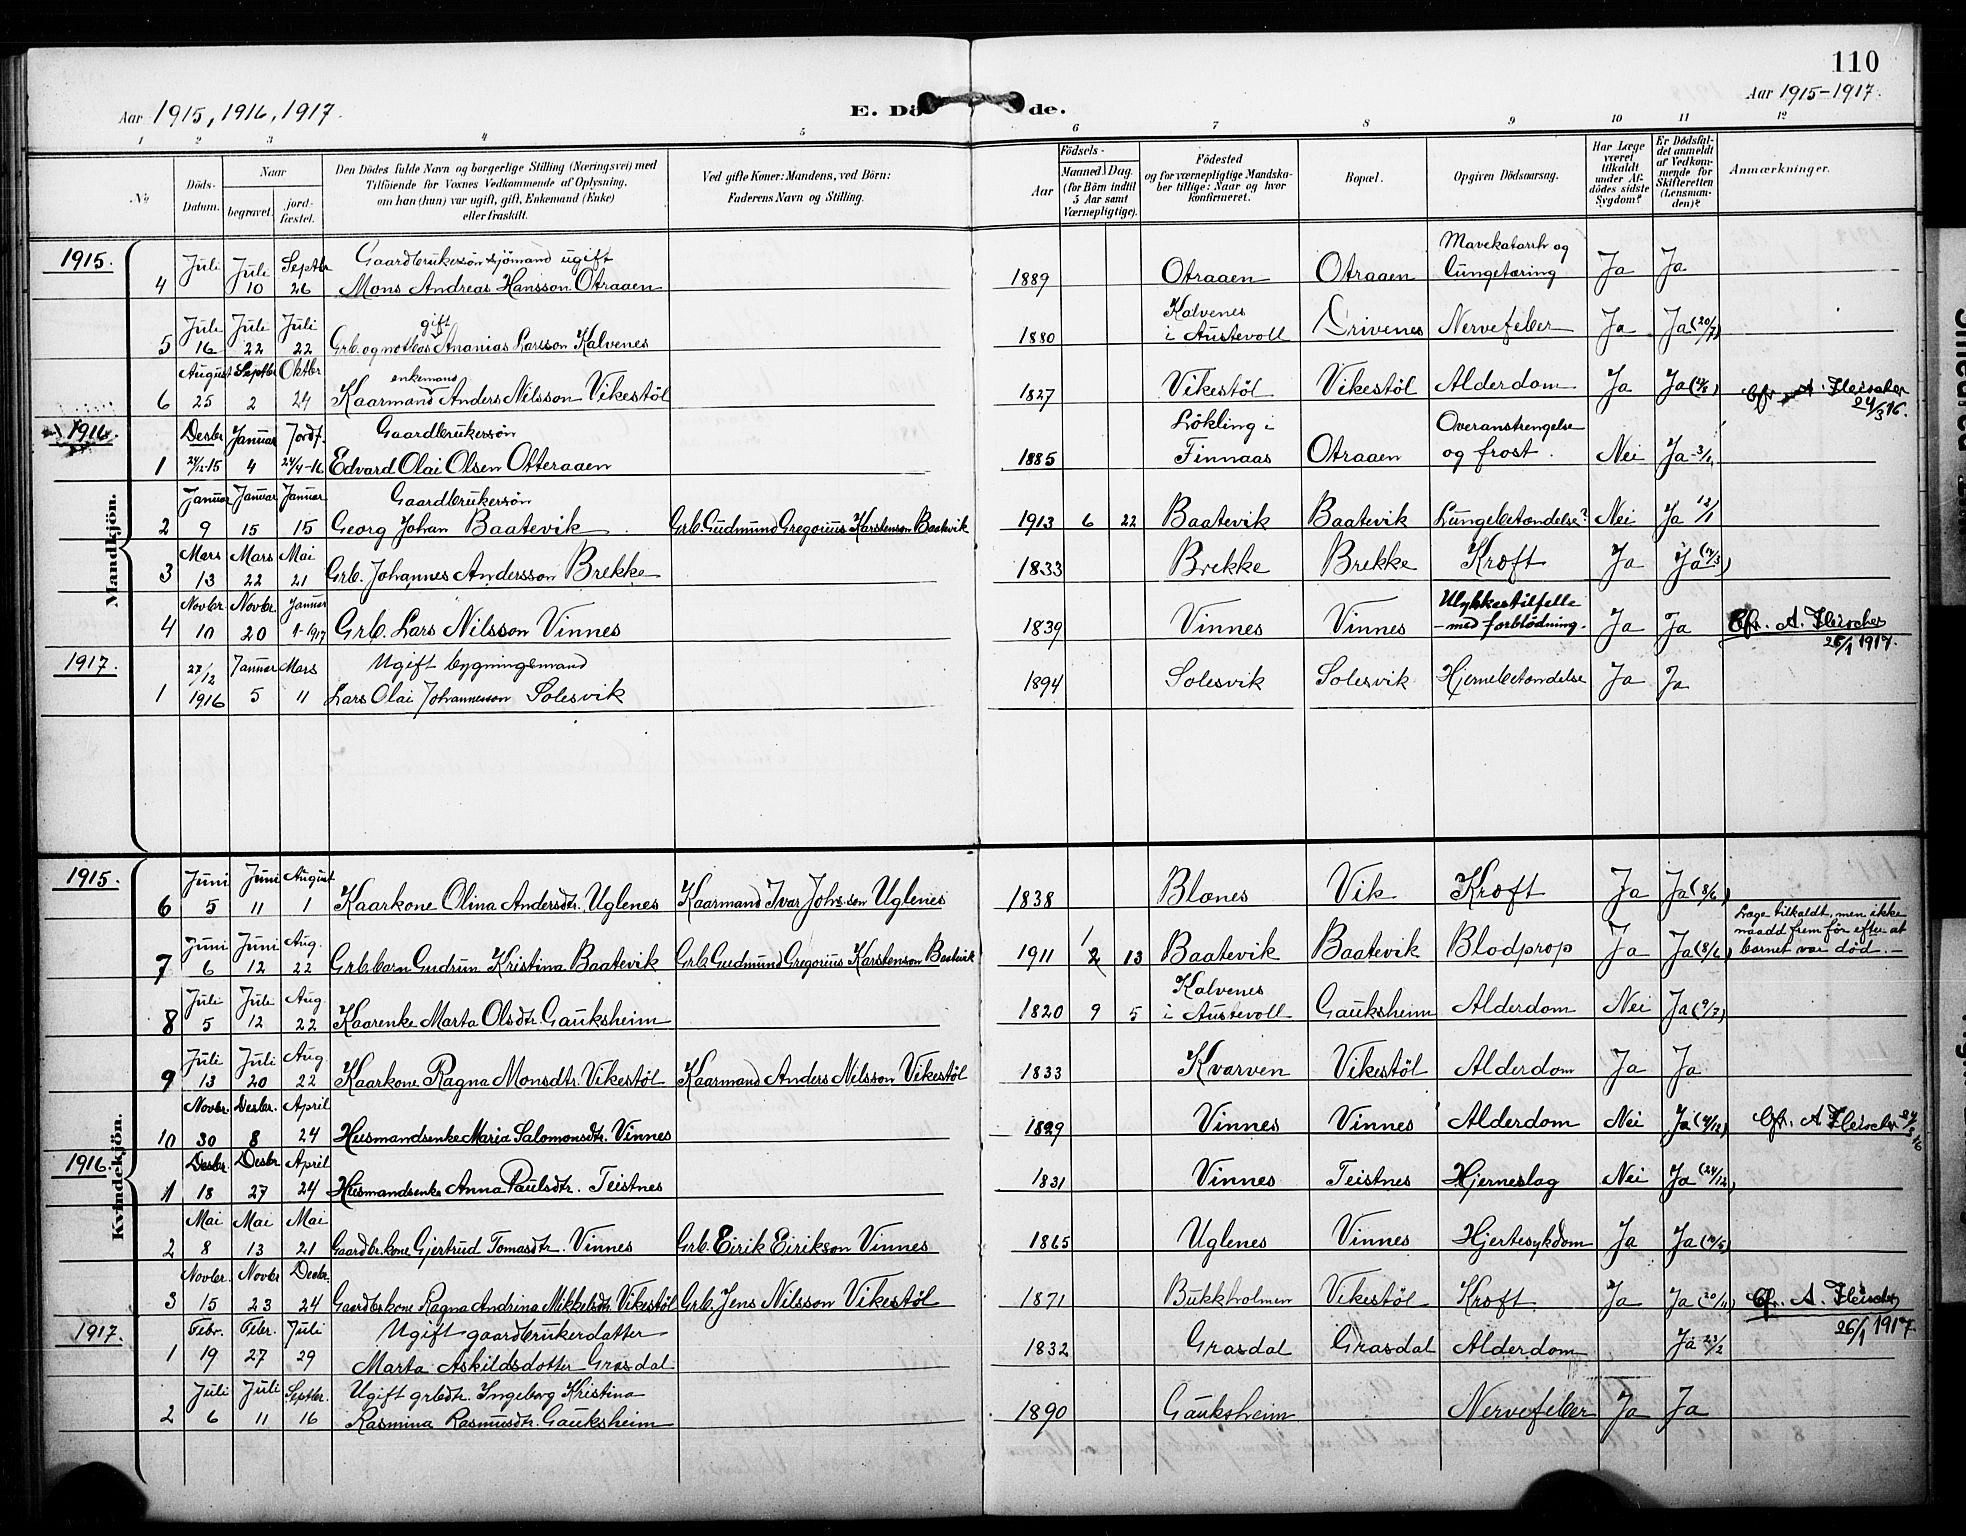 110
Aar 1915, 1916, 1917.
E. Dö de.
Aar 1915-1917.
1 2 3 4 5 6 7 8 9 10 11 12
No
Döds-Datum.
Naar
begravet.
jord-fæstet.
Den Dödes fulde Navn og borgerlige Stilling (Næringsvei) med
Tilföiende for Voxnes Vedkommende af Oplysning,
om han (hun) var ugift, gift, Enkemand (Enke)
eller fraskilt.
Ved gifte Koner: Mandens, ved Börn:
Faderens Navn og Stilling.
Födsels-
Aar
Maaned. Dag.
(for Börn indtil
5 Aar samt
Værnepligtige).
Födested
og for værnepligtige Mandska-
ber tillige: Naar og hvor
konfirmeret.
Bopæl.
Opgiven Dödsaarsag.
Har Læge
været
tilkaldt
under Af-
dödes sidste
Sygdom?
Er Dödsfal-
det anmeldt
af Vedkom-
mende for
Skifteretten
(Lensman-
den)?
Anmærkninger.
Mandkjön.
1915.
Juli Juli Septbr Gaardbrukersön sjömand ugift Mavekatarrh og
4 10 26 Mons Andreas Hansson Otraaen 1889 Otraaen Otraaen lungetæring Ja Ja
Juli Juli Juli gift Kalvenes
5 16 22 22 Grb. og notbas Ananias Larsson Kalvenes 1880 i Austevoll Drivenes Nervefeber Ja Ja (20/7)
August Septbr Oktbr enkemand
6 25 2 24 Kaarmand Anders Nilsson Vikestöl 1827 Vikestöl Vikestöl Alderdom Ja Ja Cfr. A. Fleischer
24/3 16.
1916.
Desbr Januar Jordf. Gaardbrukersön Lökling i Overanstrengelse
1 24/12-15 4 24/4-16 Edvard Olai Olsen Otteraaen 1885 Finnaas Otraaen og frost. Nei Ja
Januar Januar Januar Gaardbrukersön
2 9 15 15 Georg Johan Baatevik Grb. Gudmund Gregorius Karstenson Baatevik 1913 6 22 Baatevik Baatevik Lungebetændelse? Nei Ja 12/1
Mars Mars Mai
3 13 22 21 Grb. Johannes Andersson Brekke 1833 Brekke Brekke Kræft Ja Ja
Novbr Novbr. Januar Ulykkestilfelle
4 10 20 1-1917 Grb. Lars Nilsson Vinnes 1839 Vinnes Vinnes med forblödning. Ja Ja Cfr. A. Fleischer
26/1 1917.
1917.
27/12 Januar Mars Ugift bygningsmand
1 1916 5 11 Lars Olai Johannesson Solesvik 1894 Solesvik Solesvik Hjernebetændelse Ja Ja
Kvindekjön.
1915.
Juni Juni August
6 5 11 1 Kaarkone Olina Andersdtr. Uglenes Kaarmand Ivar Johs.son Uglenes 1838 Blænes Vik Kræft Ja Ja (8/6)
Læge tilkaldt, men ikke
naadd frem för efter at
barnet var död.
Juni Juni Aug.
7 6 12 22 Grb.barn Gudrun Kristina Baatevik Grb. Gudmund Gregorius Karstenson Baatevik 1911 2 13 Baatevik Baatevik Blodprop Ja Ja (8/6)
Juli Juli Aug. Kalvenes
8 5 12 22 Kaarenke Marta Olsdtr. Gauksheim 1820 9 5 i Austevoll Gauksheim Alderdom Nei Ja (9/7)
Juli Juli Aug
9 13 20 22 Kaarkone Ragna Monsdtr. Vikestöl Kaarmand Anders Nilsson Vikestöl 1833 Kvarven Vikestöl Alderdom Ja Ja
Novbr. Desbr. April
10 30 8 24 Husmandsenke Maria Salomonsdtr. Vinnes 1829 Vinnes Vinnes Alderdom Nei Ja Cfr. A. Fleischer 24/3 16
1916.
Desbr. Desbr April
1 18 27 24 Husmandsenke Anna Paulsdtr. Teistnes 1831 Vinnes Teistnes Hjerneslag Nei Ja (24/12)
Mai Mai Mai
2 8 13 21 Gaardbr.kone Gjertrud Tomasdtr. Vinnes Grb. Eirik Eirikson Vinnes 1865 Uglenes Vinnes Hjertesykdom Ja Ja
Novbr. Novbr Desbr.
3 15 23 24 Gaardbr.kone Ragna Andrina Mikkelsdtr. Vikestöl Grb. Jens Nilsson Vikestöl 1871 Bukkholmen Vikestöl Kræft. Ja Ja (20/11) Cfr. A. Fleischer
26/1 1917.
1917.
Febr. Febr. Juli Ugift gaardbrukerdatter
1 19 27 29 Marta Askildsdotter Grasdal 1832 Grasdal Grasdal Alderdom Ja 23/2
Juli Juli Septbr. Ugift grbdtr. Ingeborg Kristina
2 6 11 16 Rasmina Rasmusdtr. Gauksheim 1890 Gauksheim Nervefeber Ja Ja